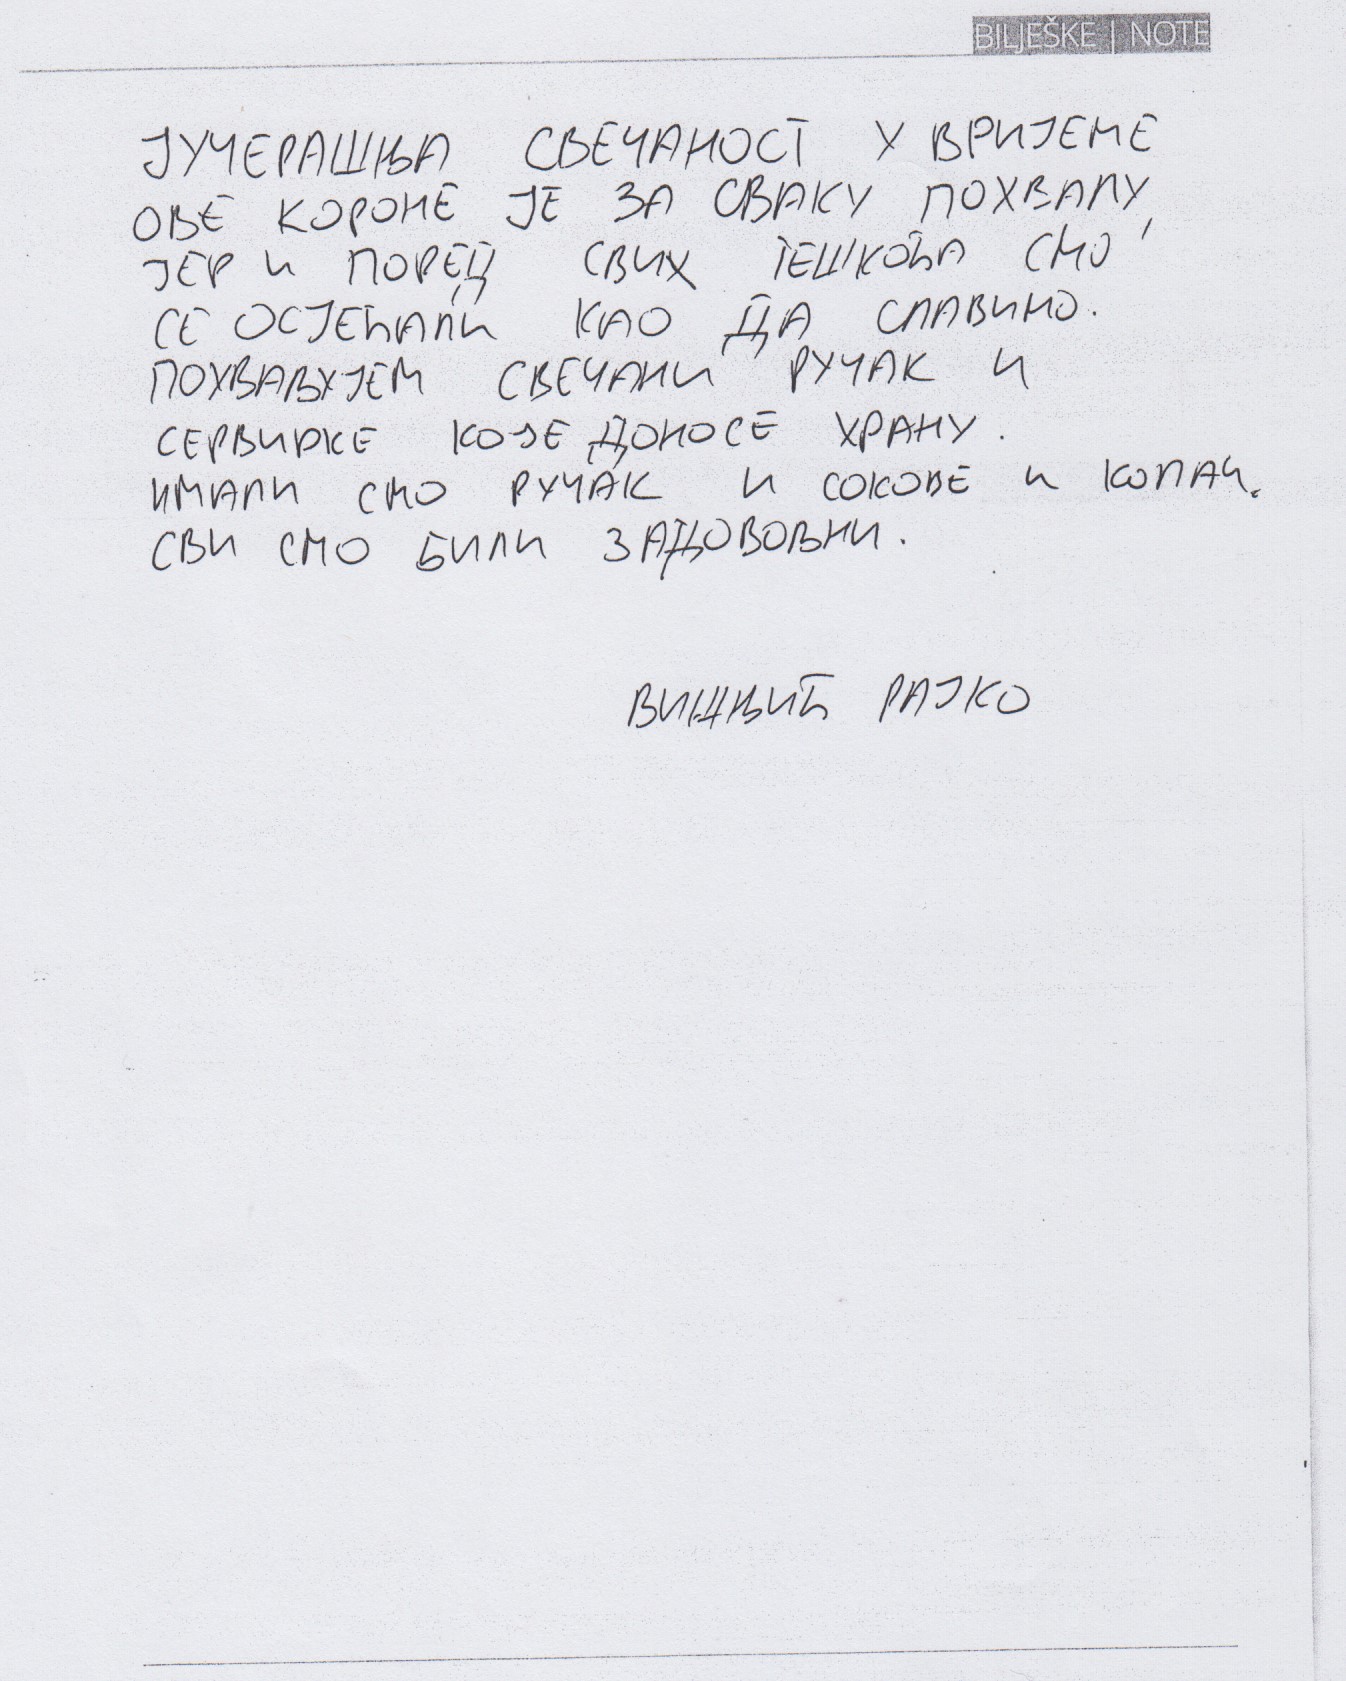 BILJEŠKE | NOTE
ЈУЧЕРАШЊА СВЕЧАНОСТ У ВРИЈЕМЕ
ОВЕ КОРОНЕ ЈЕ ЗА СВАКУ ПОХВАЛУ,
ЈЕР И ПОРЕД СВИХ ТЕШКОЋА СМО
СЕ ОСЈЕЋАЛИ КАО ДА СЛАВИМО.
ПОХВАЉУЈЕМ СВЕЧАНИ РУЧАК И
СЕРВИРКЕ КОЈЕ ДОНОСЕ ХРАНУ.
ИМАЛИ СМО РУЧАК И СОКОВЕ И КОЛАЧ.
СВИ СМО БИЛИ ЗАДОВОЉНИ.
РАЈКО